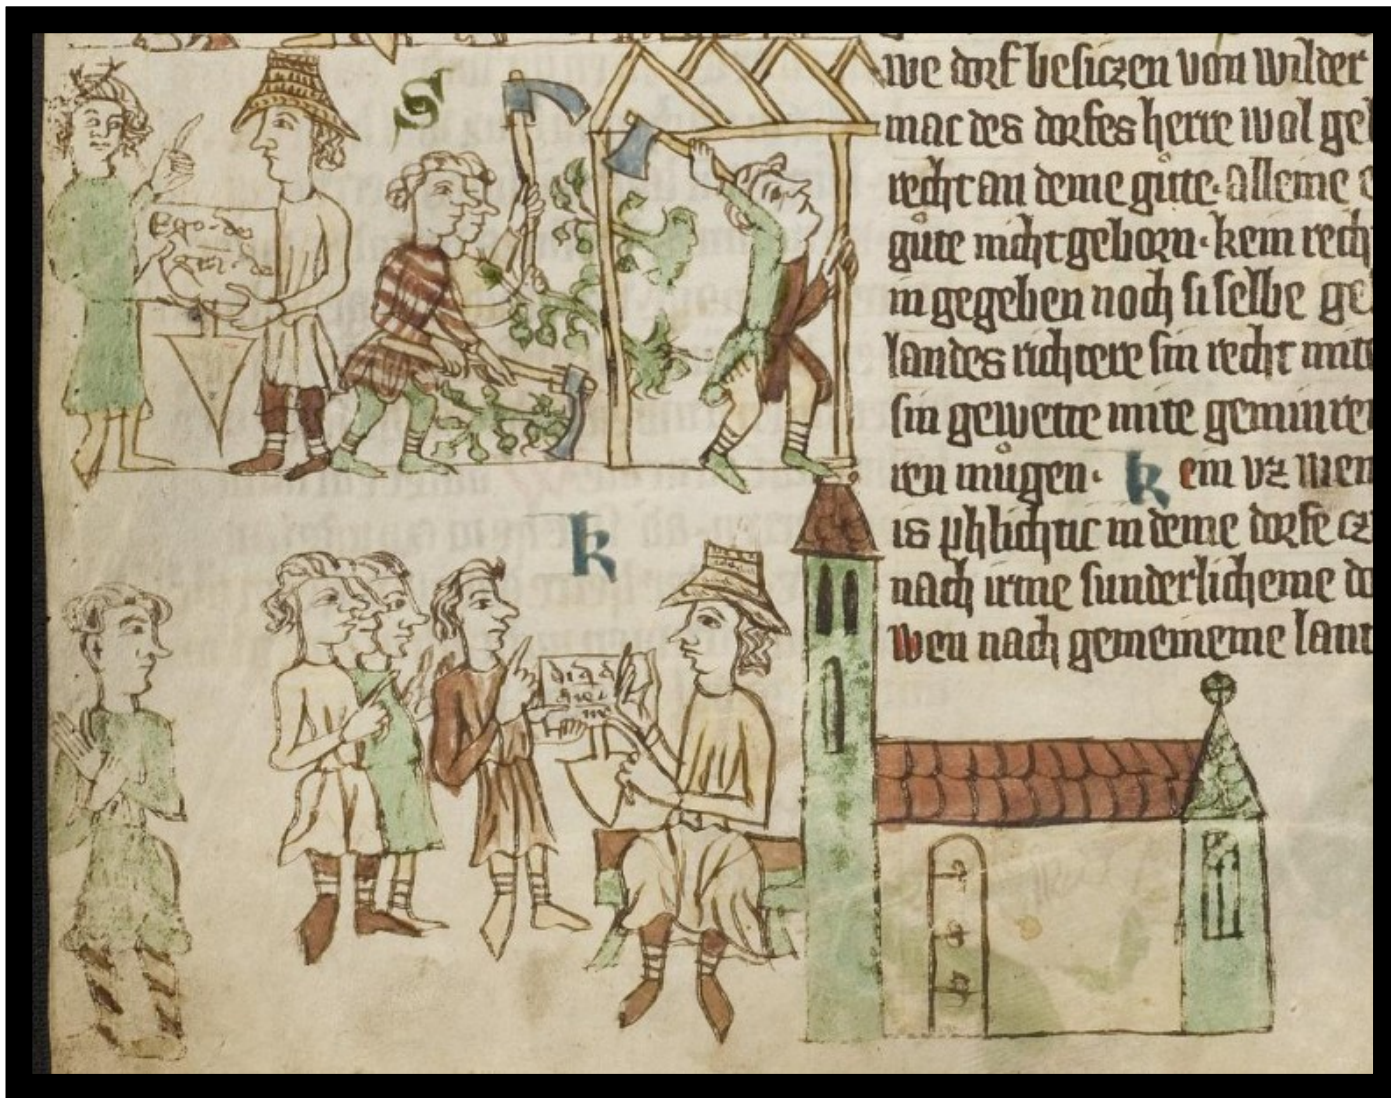 S
Ego de
gra
we dorf besiczen von wilder
mac des dorfes herre wol gel
recht an deme gůte· alleine e
gůte nicht geborn· kein rech
in gegeben noch si selbe ge
landes richtere sin recht mite
sin gewette mite geminren
ren můgen· k ein vz wen
is phlichtic in deme dorfe cz
nach irme sunderlicheme do
wen nach gemeineme lant
k